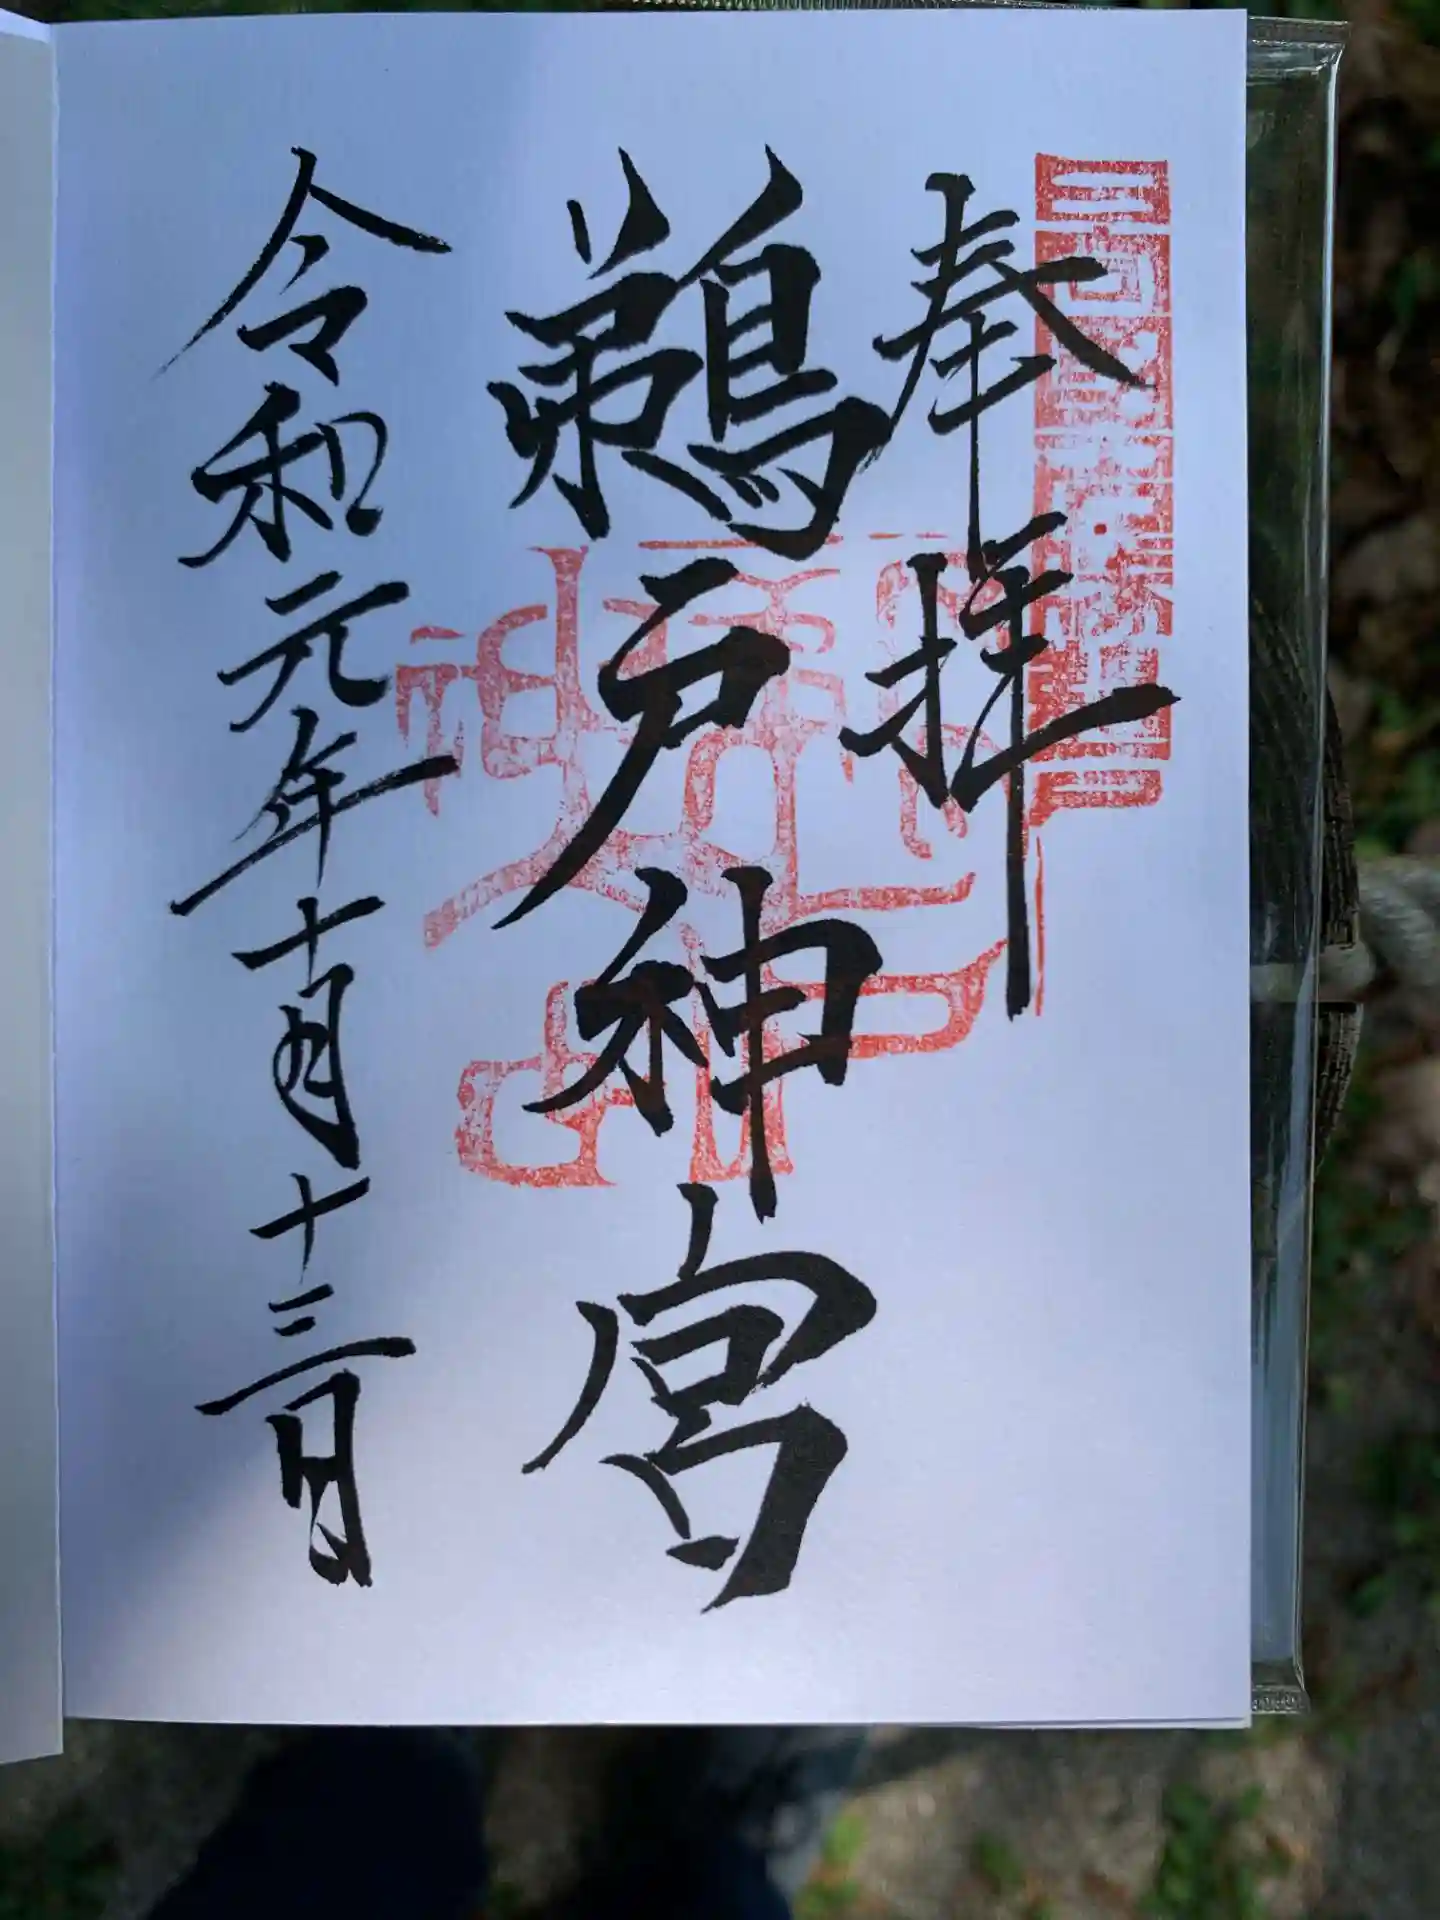 奉拝
鵜戸神宮
令和元年十月十三日